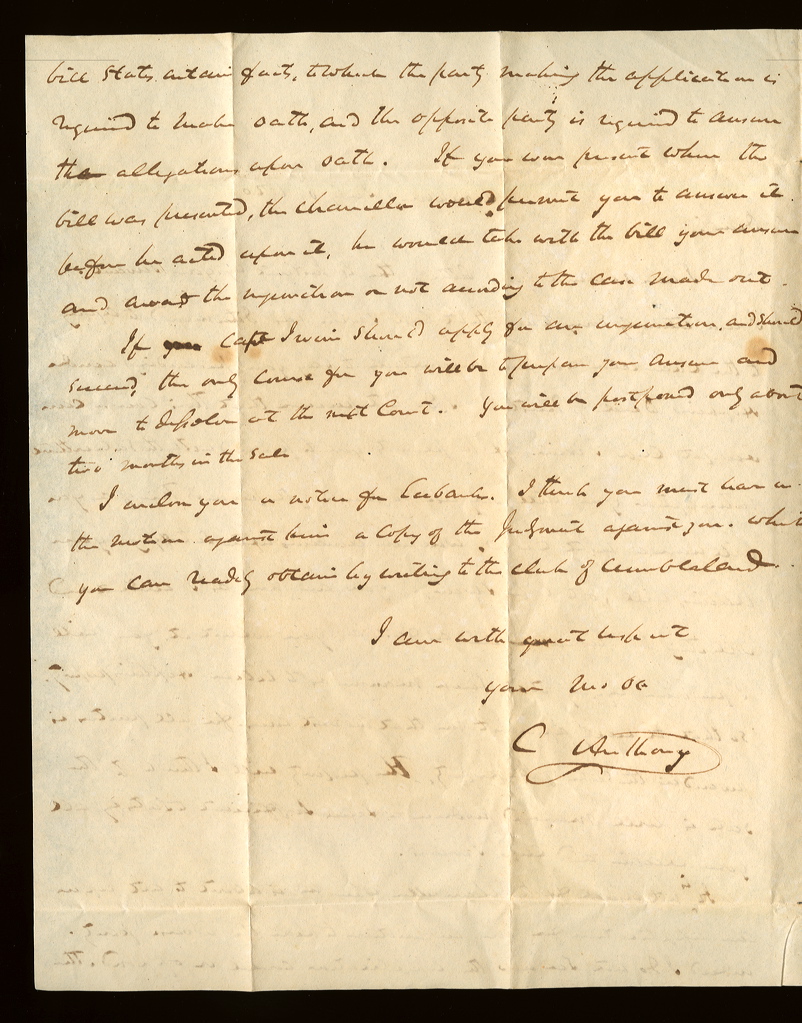 bill states certain facts, to which the party making the application is
required to make oath, and the opposite party is required to answer
the allegations upon oath. If you were present when the
bill was presented, the chancellor would permit you to answer it
before he acted upon it, he would take with the bill your answer
and award the injunction or not according to the case made out.
If Capt Irwin should apply for an injunction, and should
succeed, the only course for you will be to prepare your answer and
move to dissolve at the next Court. You will be postponed only about
two months in the sale
I enclose you a notice for Eubanks. I think you must have in
the motion against him a copy of the Judgment against you. which
you can readily obtain by writing to the clerk of Cumberland.
I am with great respect
your Mo Ob
C Anthony